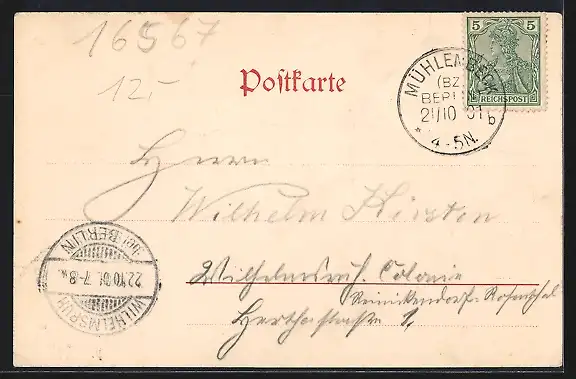 16567
12.-
Postkarte
5 5
REICHSPOST
MÜHLENBECK
(BZ.
BERLIN)
21/10 01
b
* 4-5N.
Herrn
Wilhelm
Wilhelmsruh. Colonie
Reinickendorf-Rosenthal
Herthastraße 1.
WILHELMSRUH
22.10.01. 7-8
bei BERLIN